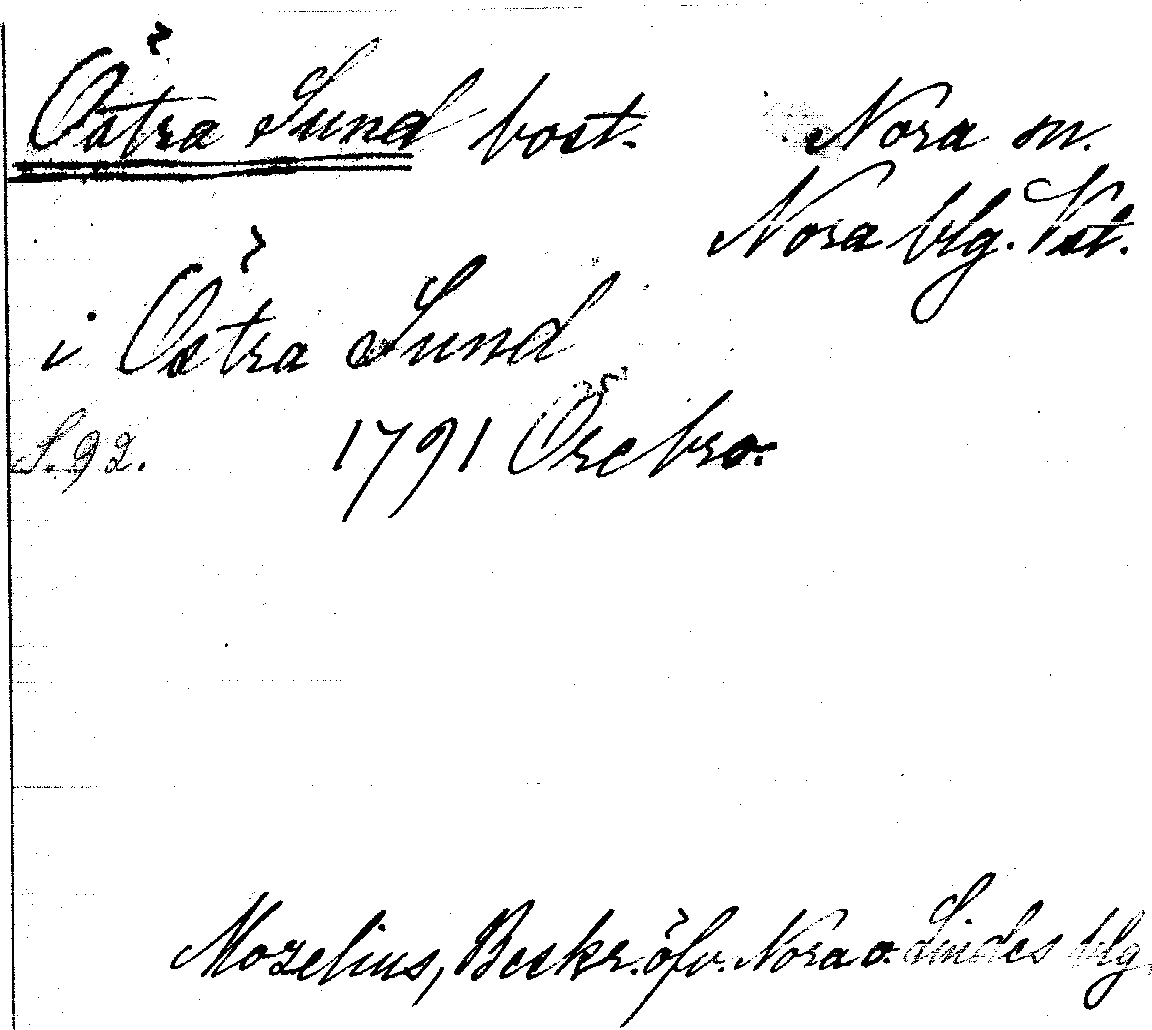 Östra Sund bost. Nora sn.
Nora blg. Vst.
i Östra Sund
S. 92. 1791 Örebro.
Mozelius, Beskr. öfv. Nora o. Lindes blg